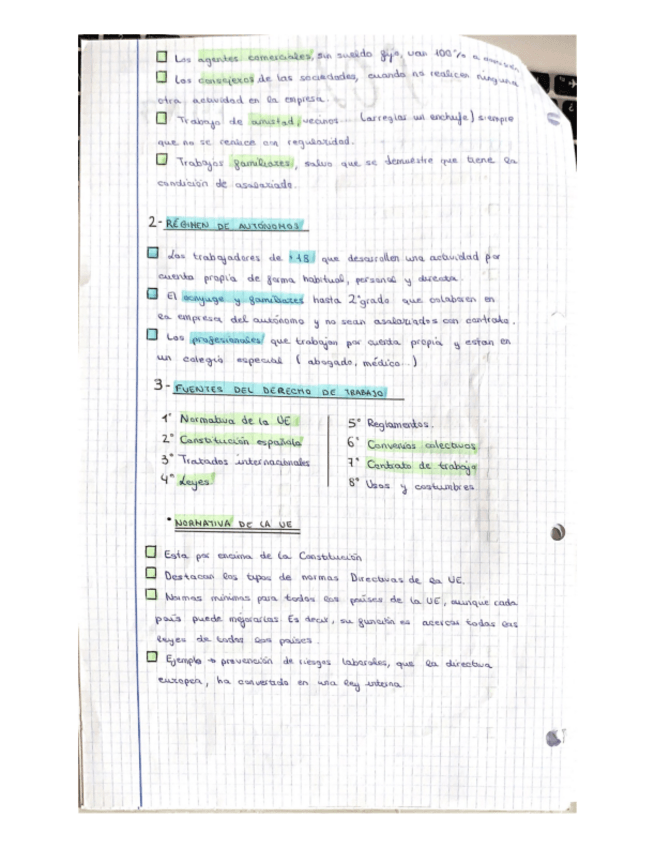 Los agentes comerciales, sin sueldo fijo, van 100% a comisión
Los consejeros de las sociedades, cuando no realicen ninguna
otra actividad en la empresa.
Trabajo de amistad, vecinos... (arreglas un enchufe) siempre
que no se realice con regularidad.
Trabajos familiares, salvo que se demuestre que tiene la
condición de asalariado.
2- RÉGIMEN DE AUTÓNOMOS
Los trabajadores de +18 que desarrollen una actividad por
cuenta propia de forma habitual, personal y directa.
El conyuge y familiares hasta 2º grado que colaboren en
la empresa del autónomo y no sean asalariados con contrato.
Los profesionales que trabajan por cuenta propia y estan en
un colegio especial ( abogado, médico...)
3- FUENTES DEL DERECHO DE TRABAJO
1º Normativa de la UE
2º Constitución española
3º Tratados internacionales
4º Leyes.
5º Reglamentos.
6º Convenios colectivos
7º Contrato de trabajo
8º Usos y costumbres
· NORMATIVA DE LA UE
Esta por encima de la Constitución
Destacan los tipos de normas Directivas de la UE.
Normas mínimas para todos los países de la UE, aunque cada
país puede mejorarlas. Es decir, su función es acercar todas las
leyes de todos los países.
Ejemplo → prevención de riesgos laborales, que la directiva
europea, ha convertido en una ley interna.